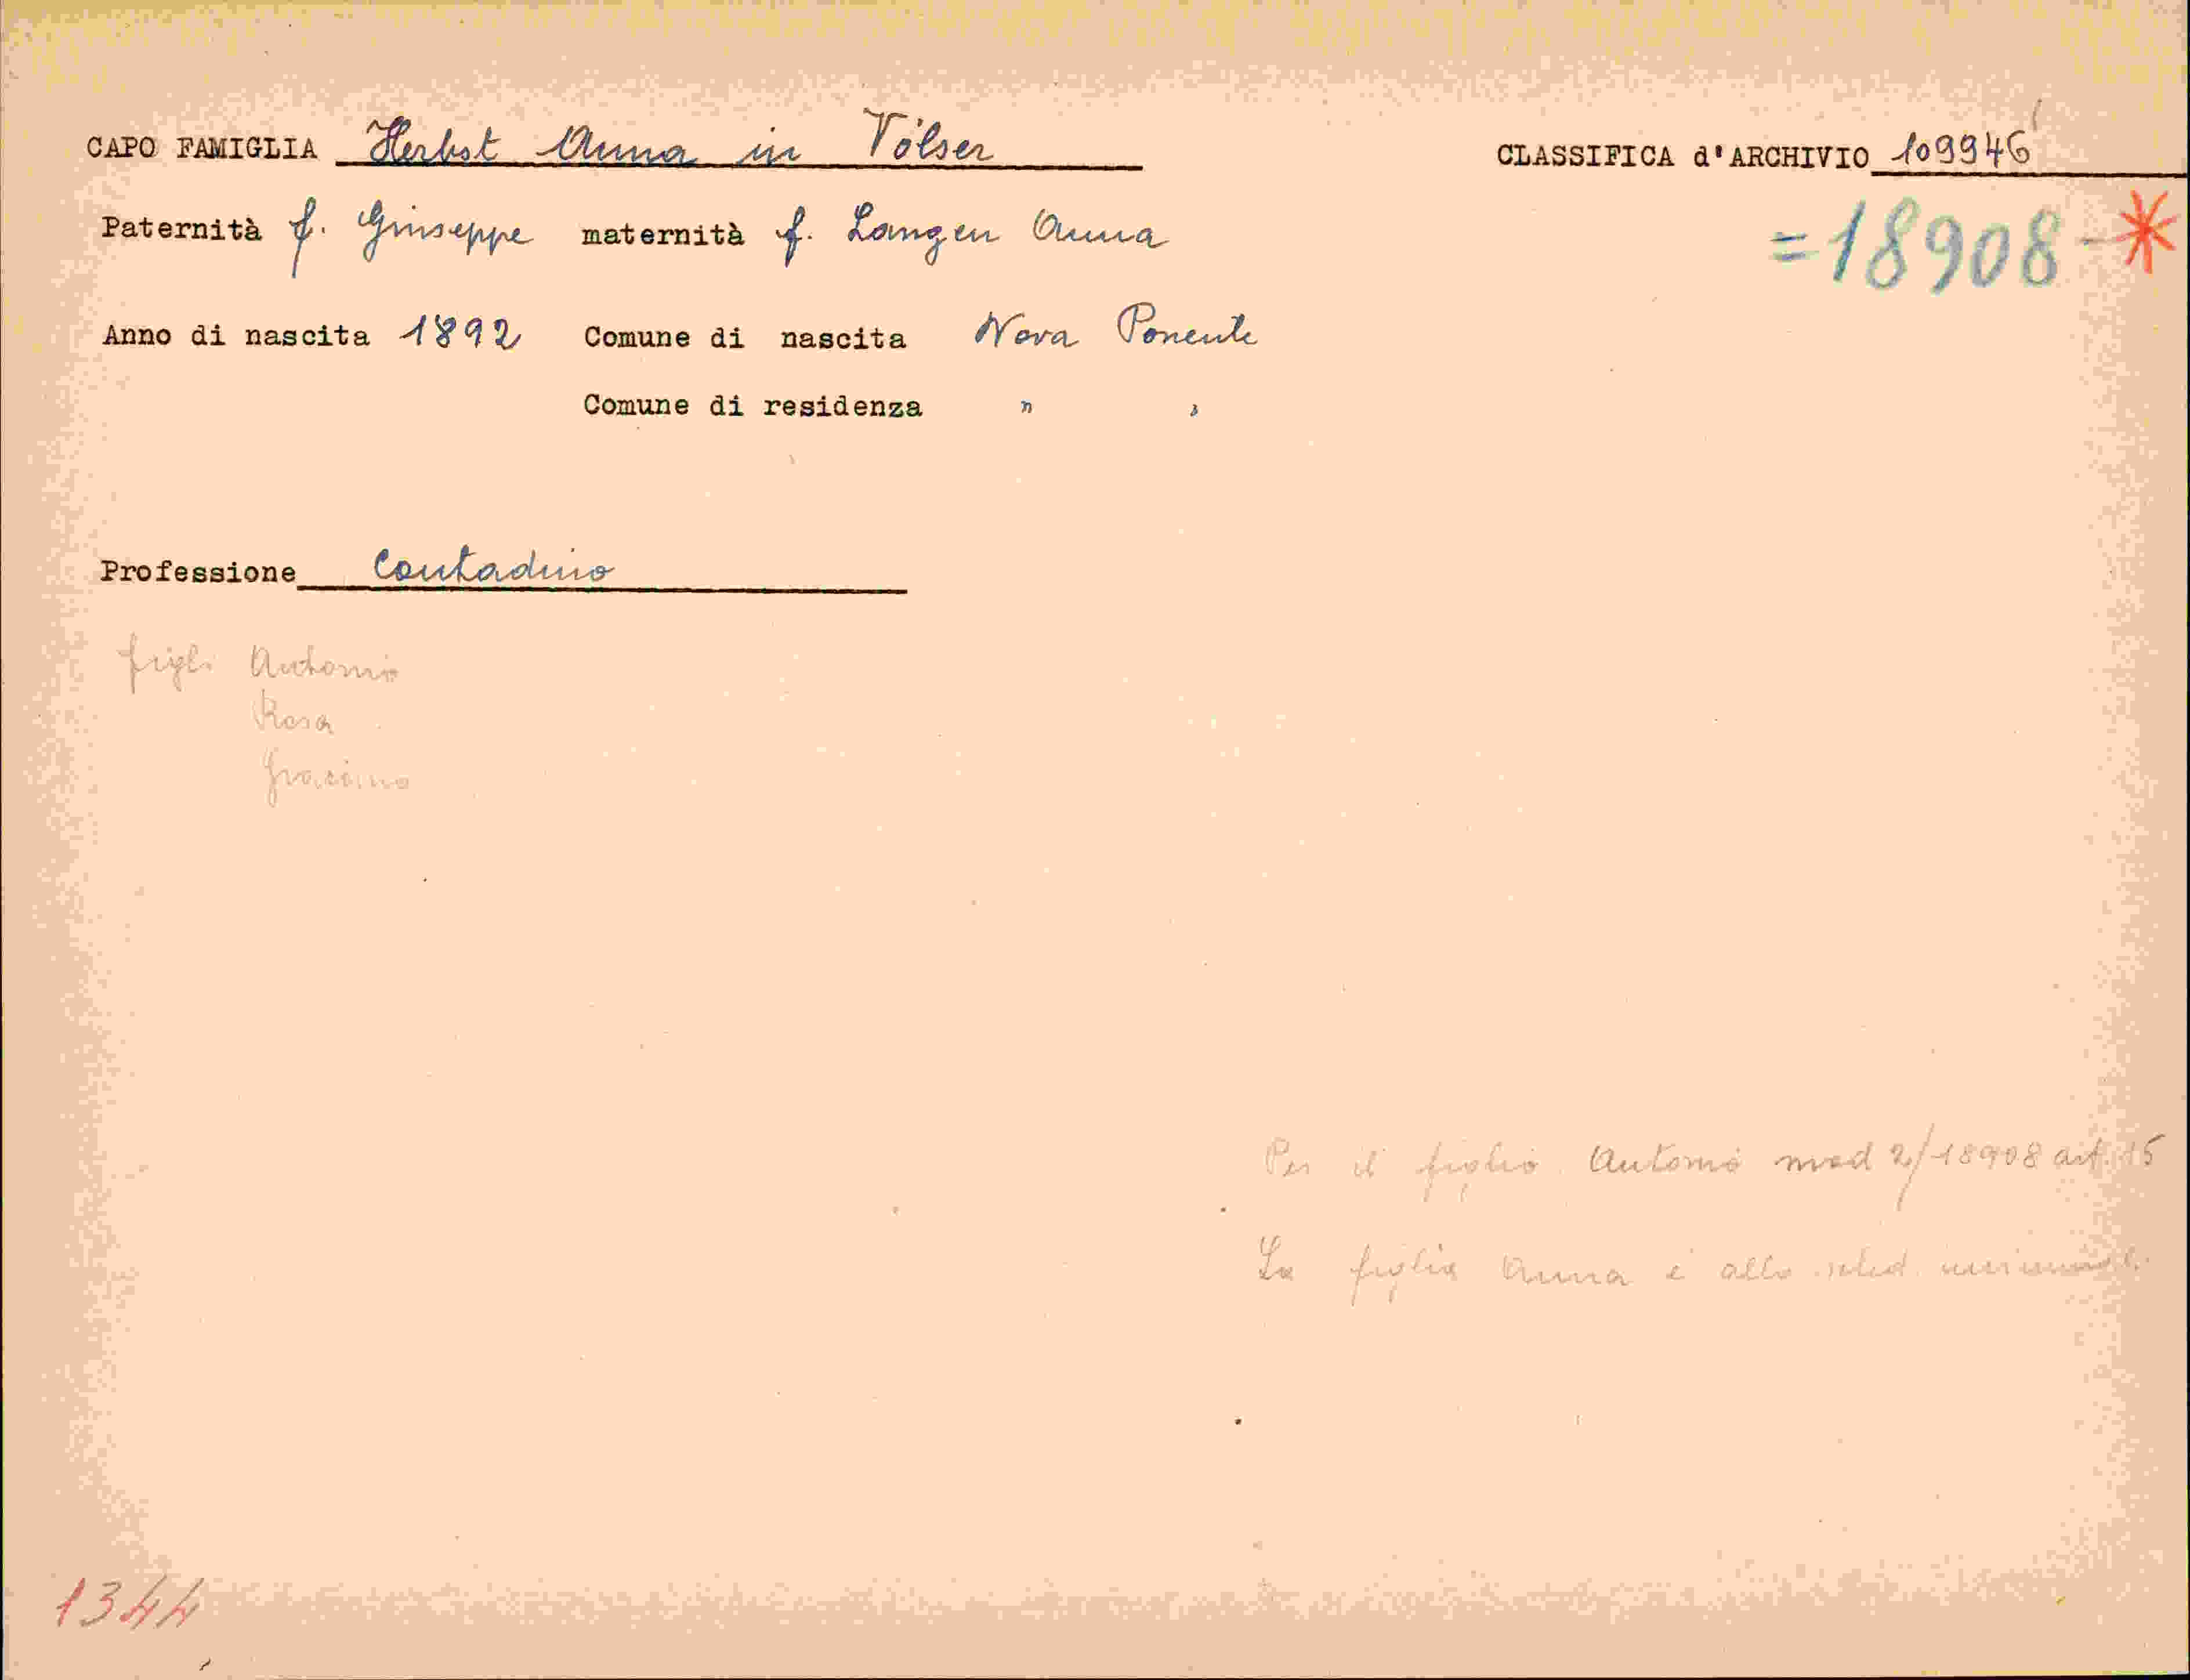 CAPO FAMIGLIA Herbst Anna in Völser CLASSIFICA d'ARCHIVIO 109946
= 18908 - *
Paternità f. Giuseppe maternità f. Langen Anna
Anno di nascita 1892 Comune di nascita Nova Ponente
Comune di residenza " "
Professione Contadino
figli Antonio
Rosa
Per il figlio Antonio mod 2/18908 art. 15
La figlia Anna è alla sched.
1344